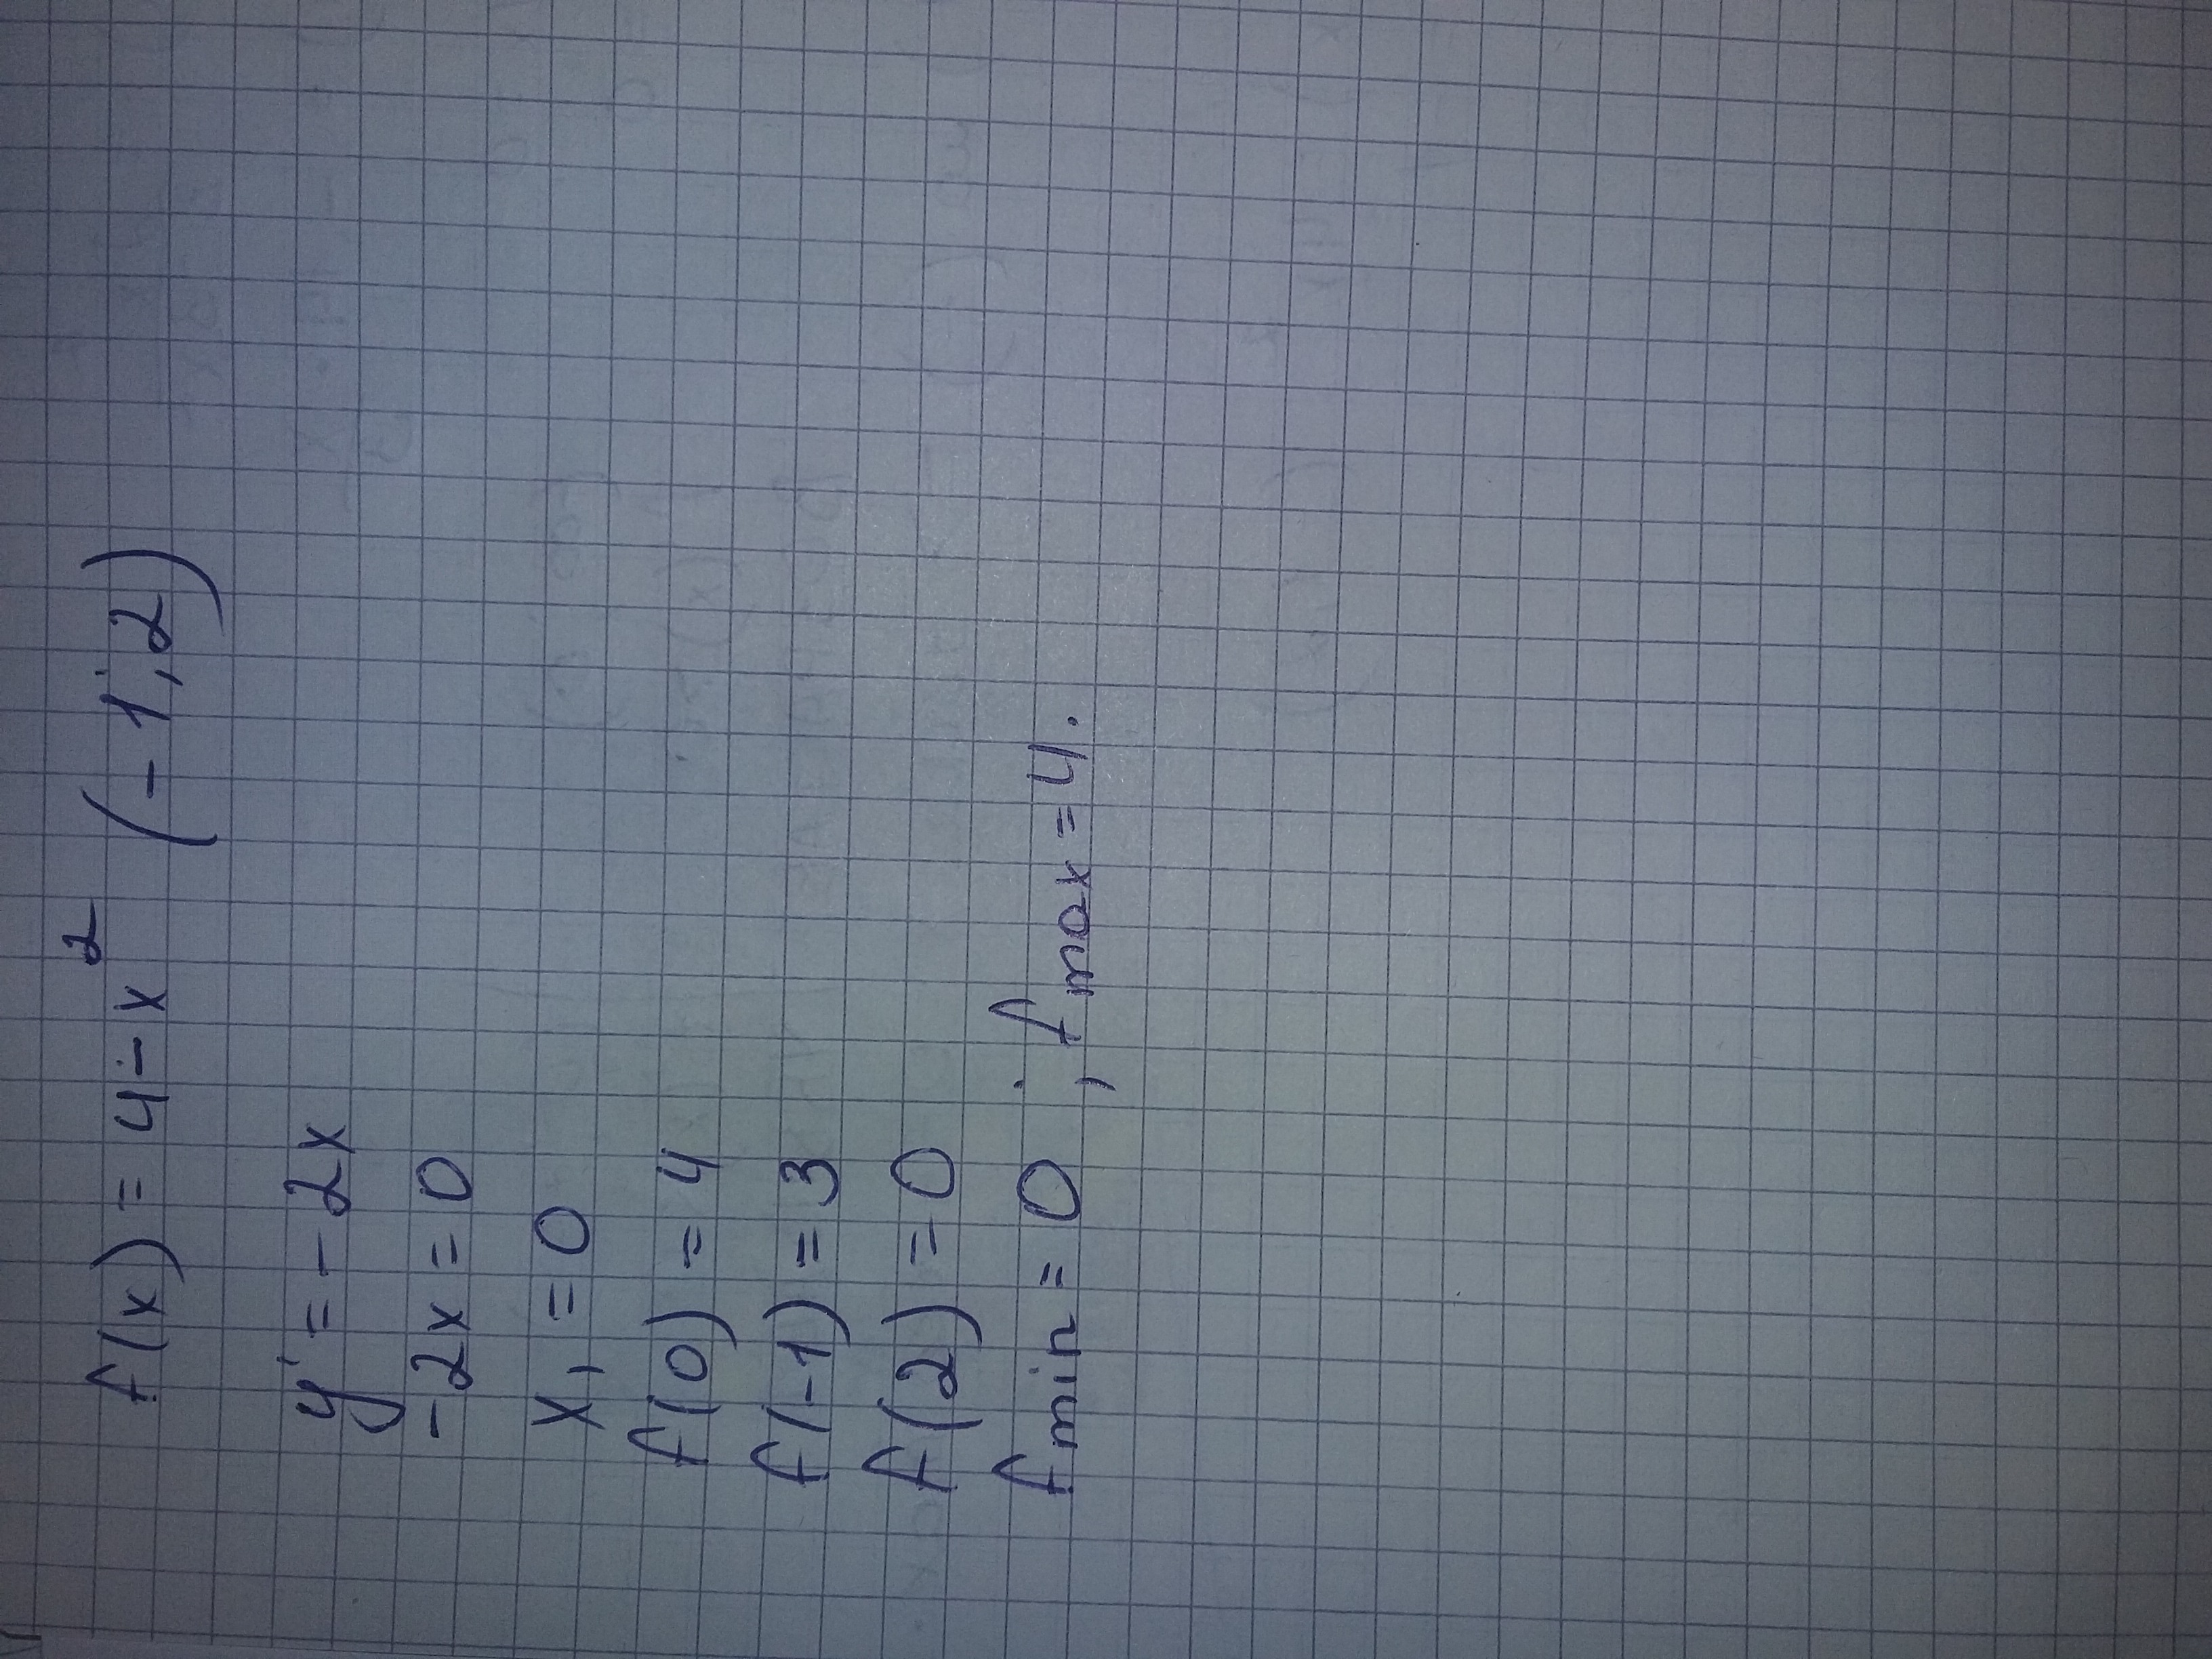 f(x) = 4 - x² (-1; 2)
y' = -2x
-2x = 0
x₁ = 0
f(0) = 4
f(-1) = 3
f(2) = 0
f min = 0 ; f max = 4.